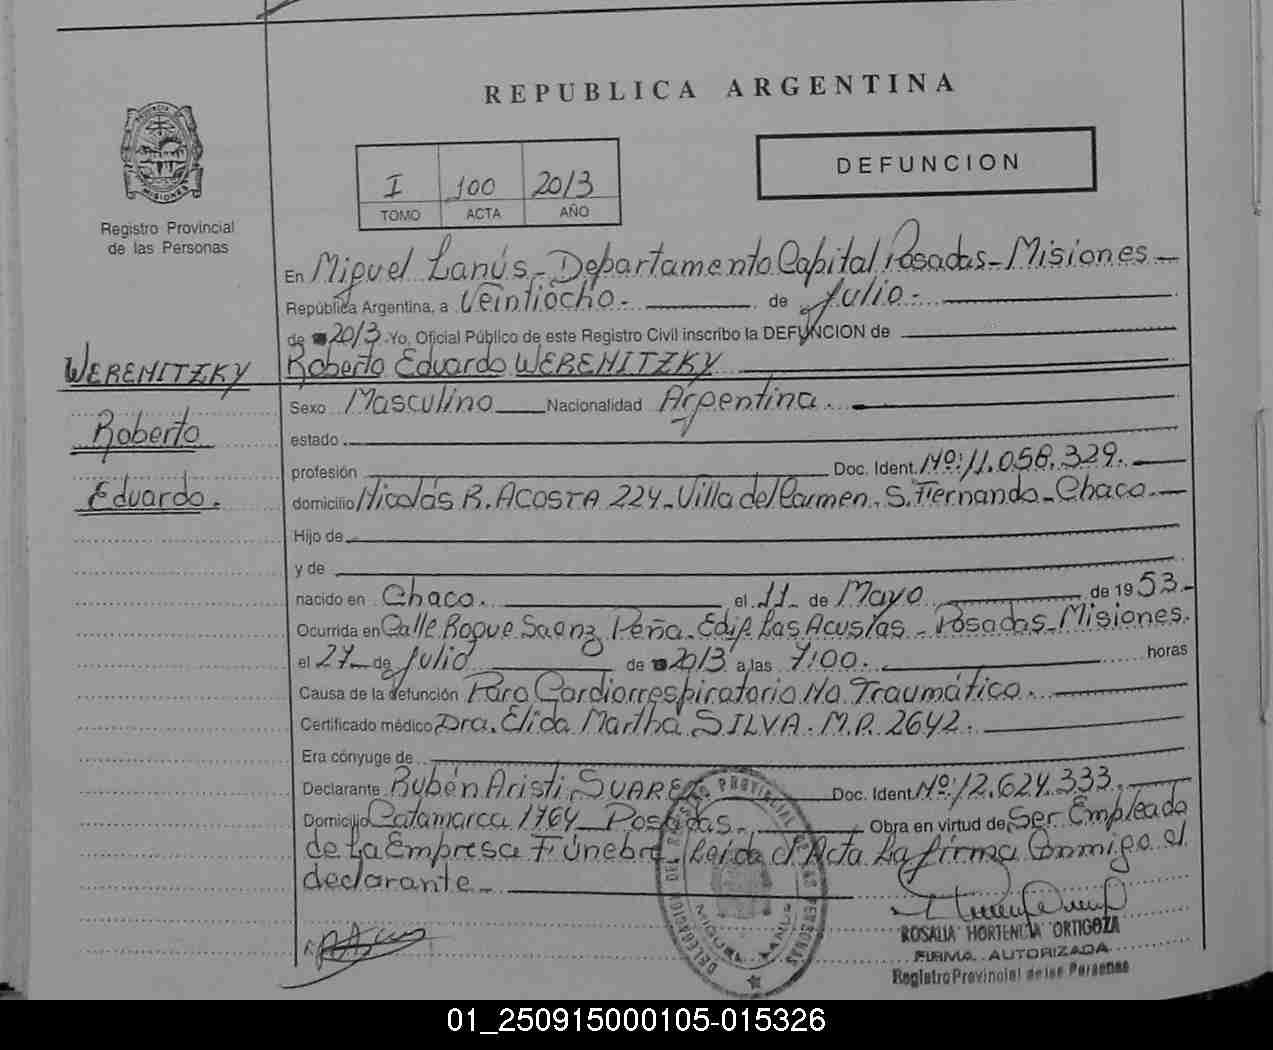 REPUBLICA ARGENTINA
I 100 2013
TOMO ACTA AÑO
DEFUNCION
MISIONES
Registro Provincial
de las Personas
WERENITZKY
Roberto
Eduardo.
En Miguel Lanús - Departamento Capital Posadas - Misiones -
República Argentina, a Veintiocho - de Julio -
de 2013 Yo, Oficial Público de este Registro Civil inscribo la DEFUNCION de
Roberto Eduardo WERENITZKY
Sexo Masculino Nacionalidad Argentina.
estado
profesión Doc. Ident. Nº: 11.058.329.
domicilio Nicolás R. ACOSTA 224 - Villa del Carmen. S. Fernando - Chaco -
Hijo de
y de
nacido en Chaco. el 11 - de Mayo de 1953 -
Ocurrida en Calle Roque Saenz Peña. Edif. Las - Posadas - Misiones.
el 27 - de Julio de 2013 a las 7:00. horas
Causa de la defunción Paro Cardiorrespiratorio No Traumático.
Certificado médico Dra. Elida Martha SILVA. M.P. 2642.
Era cónyuge de
Declarante Rubén Aristi, SUAREZ Doc. Ident. Nº: 12.624.333.
Domicilio Catamarca 1764 - Posadas - Obra en virtud de Ser Empleado
de La Empresa Fúnebre - Leida el Acta La firma Conmigo el
declarante -
DELEGACION DEL REGISTRO PROVINCIAL DE LAS PERSONAS
MIGUEL LANUS
ROSALIA HORTENCIA ORTIGOZA
FIRMA AUTORIZADA
Registro Provincial de las Personas
01_250915000105-015326